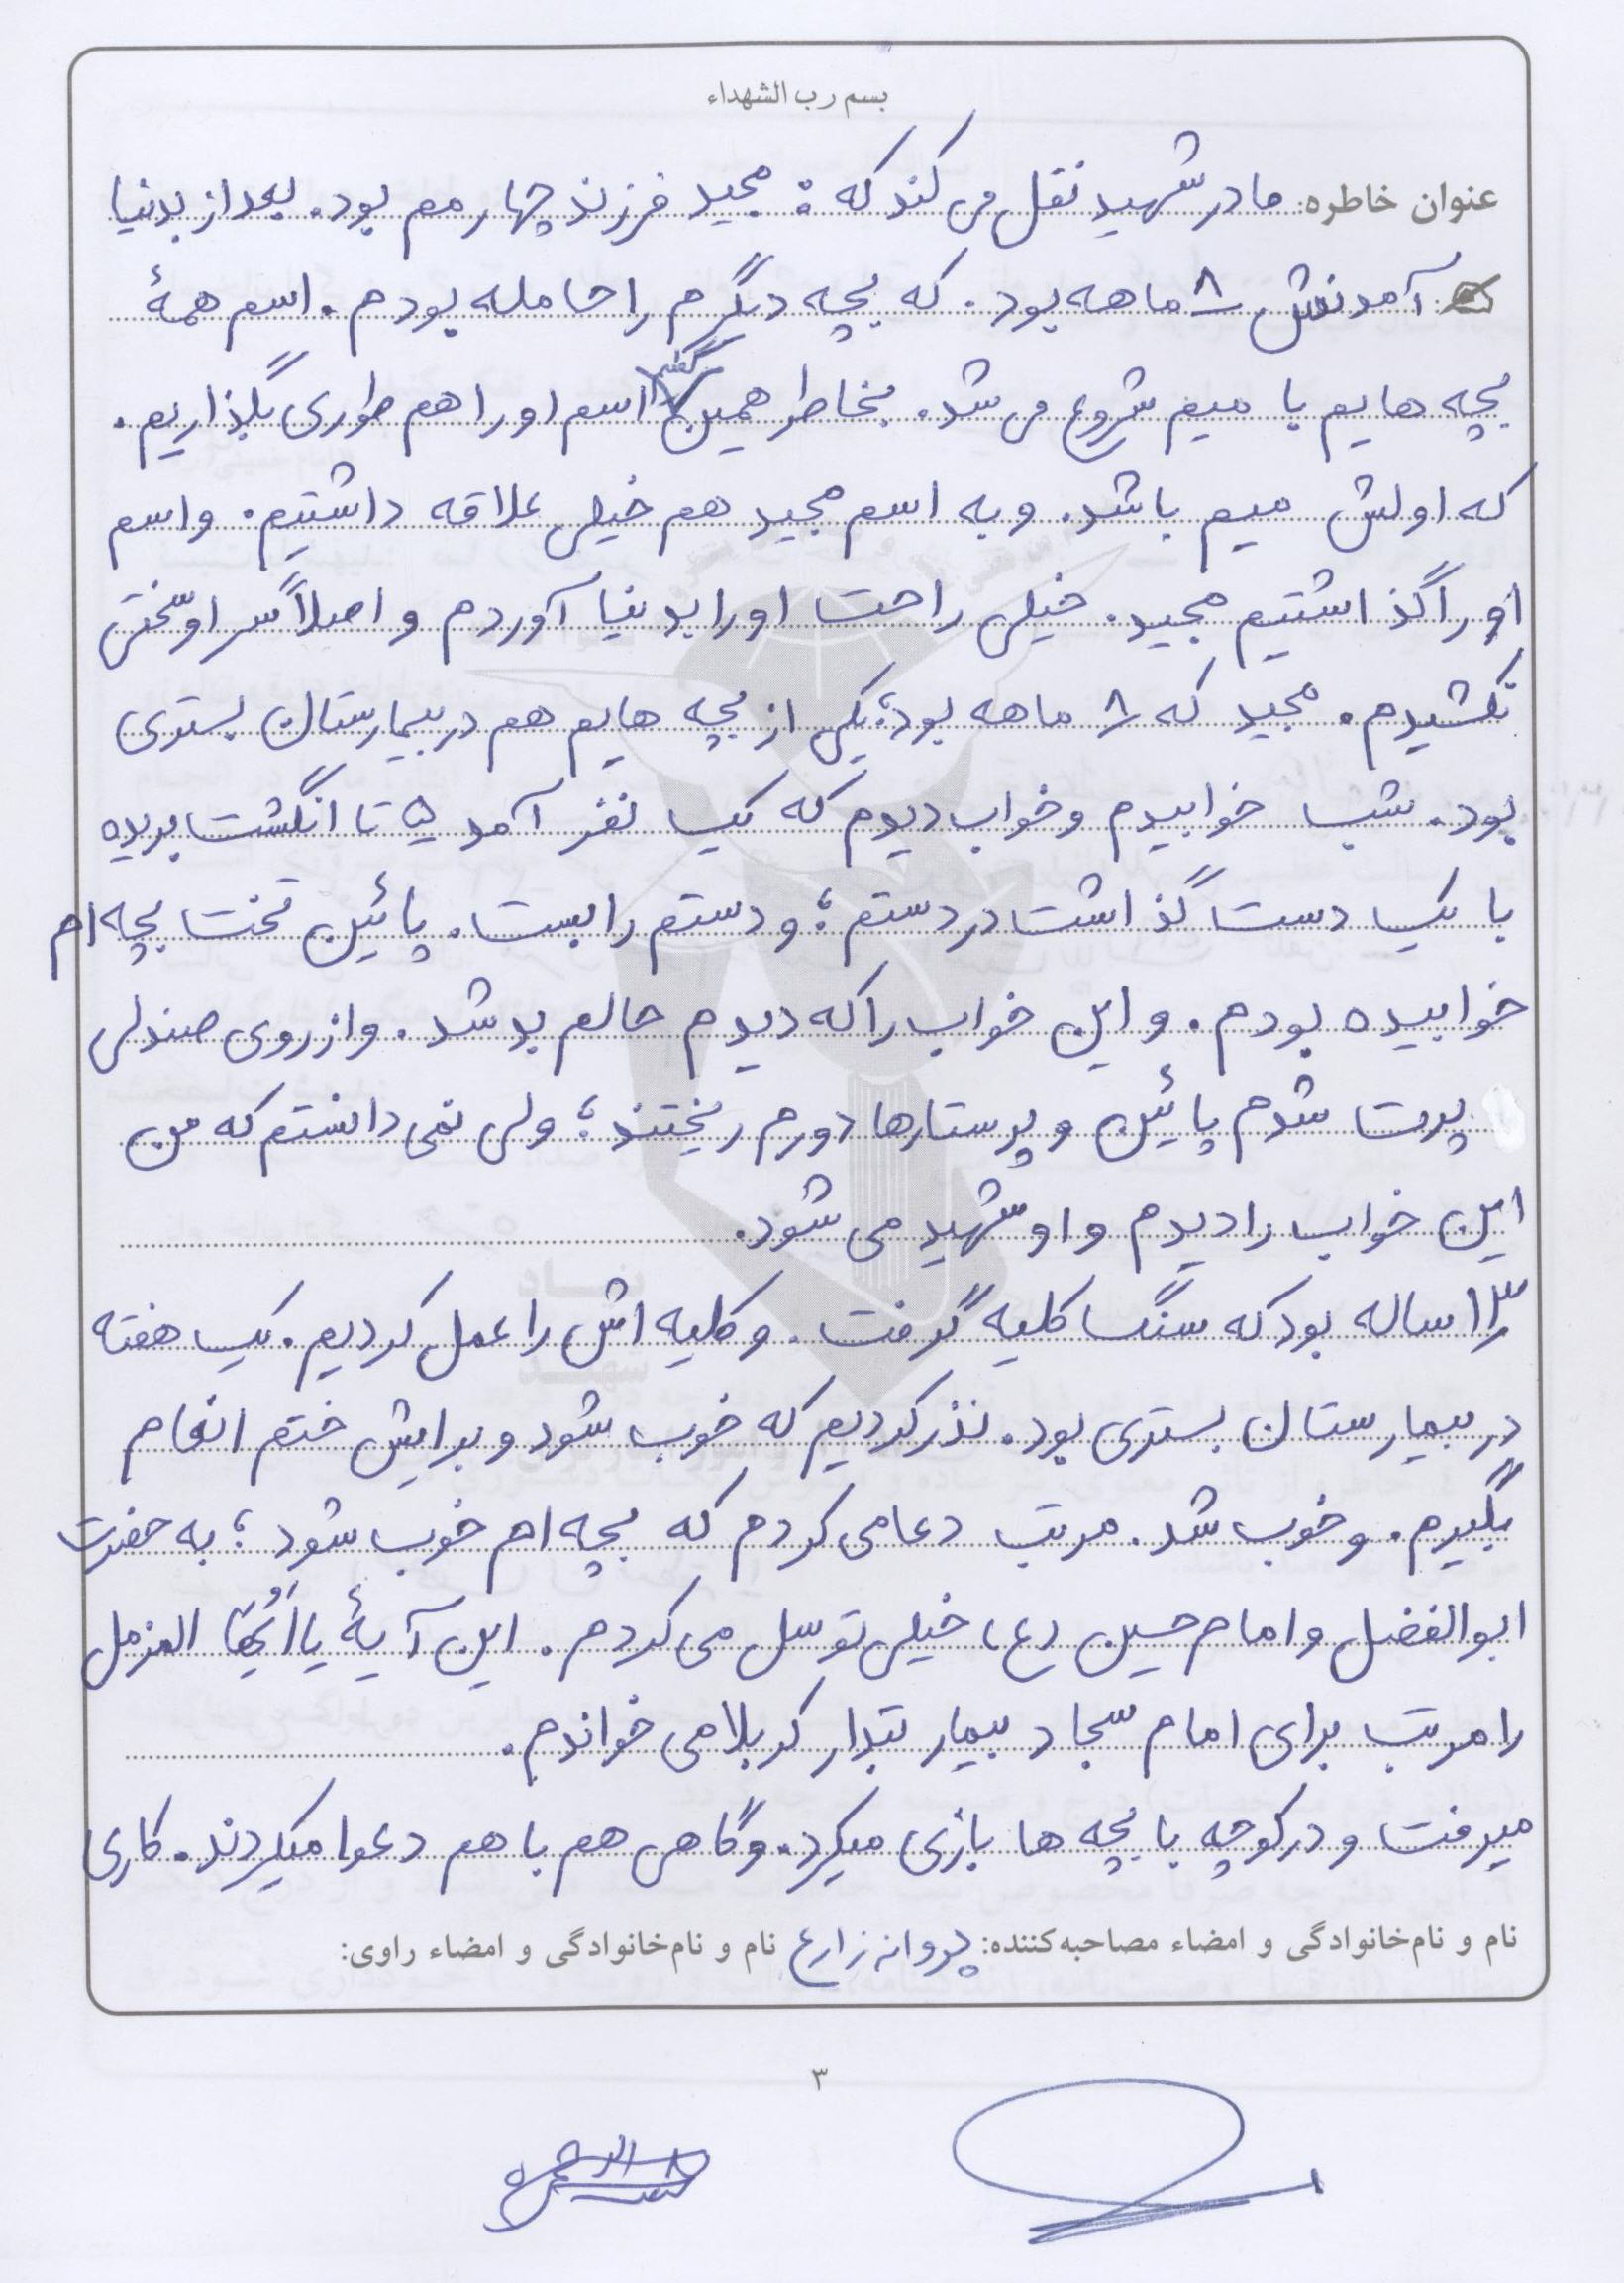 بسم رب الشهداء
عنوان خاطره: مادر شهید نقل می کند که : مجید فرزند چهارمم بود. بعد از بدنیا
آمدنش ۸ ماهه بود. که بچه دیگرم را حامله بودم. اسم همهٔ
بچه هایم با میم شروع می شد. بخاطر همین گفتیم اسم او را هم طوری بگذاریم.
که اولش میم باشد. و به اسم مجید هم خیلی علاقه داشتیم. و اسم
او را گذاشتیم مجید. خیلی راحت او را بدنیا آوردم و اصلاً سر او سختی
نکشیدم. مجید که ۸ ماهه بود؛ یکی از بچه هایم هم در بیمارستان بستری
بود. شب خوابیدم و خواب دیدم که یک نفر آمد ۵ تا انگشت بریده
با یک دست گذاشت در دستم؛ و دستم را بست. پائین تخت بچه ام
خوابیده بودم. و این خواب را که دیدم حالم بد شد. و از روی صندلی
پرت شدم پائین و پرستارها دورم ریختند؛ ولی نمی دانستم که من
این خواب را دیدم و او شهید می شود.
۱۳ ساله بود که سنگ کلیه گرفت. و کلیه اش را عمل کردیم. یک هفته
در بیمارستان بستری بود. نذر کردیم که خوب شود و برایش ختم انعام
بگیرم. و خوب شد. مرتب دعا می کردم که بچه ام خوب شود؛ به حضرت
ابوالفضل و امام حسین (ع) خیلی توسل می کردم. این آیهٔ یا اَیُّهَا المزمل
را مرتب برای امام سجاد بیمار تبدار کربلا می خواندم.
میرفت و در کوچه با بچه ها بازی میکرد. و گاهی هم با هم دعوا میکردند. کاری
نام و نام‌خانوادگی و امضاء مصاحبه‌کننده: پروانه زارع نام و نام‌خانوادگی و امضاء راوی:
۳